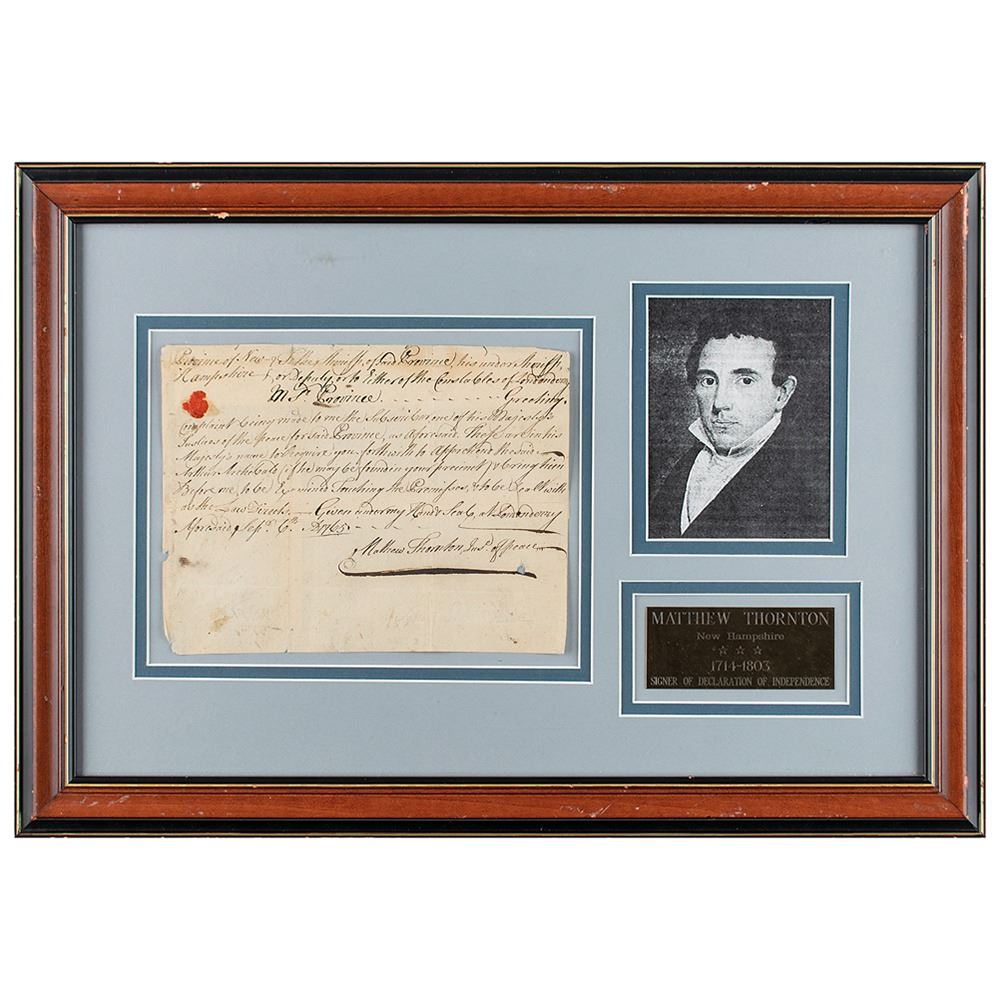 Province of New & To the Sheriff, of said Province, his under Sheriff,
Hampshire & or Deputy or to Either of the Constables of Londonderry
in sd Province - - - - - - - Greeting
Complaint being made to me the Subscriber one of his Majestys
Justices of the Peace for said Province, as Aforesaid. These are in his
Majesty's name to Require you forthwith to Apprehend the said
Arthur Archibald (if he may be found in your precinct) & bring him
Before me, to be Examined Touching the Premisses, & to be Dealt with
as the Law Directs. — Given under my Hand & Seal, at Londonderry
Aforesaid, Sepr. 6th. 1765 - - -
Matthew Thornton, Just. of Peace
MATTHEW THORNTON
New Hampshire
☆ ☆ ☆
1714-1803
SIGNER OF DECLARATION OF INDEPENDENCE